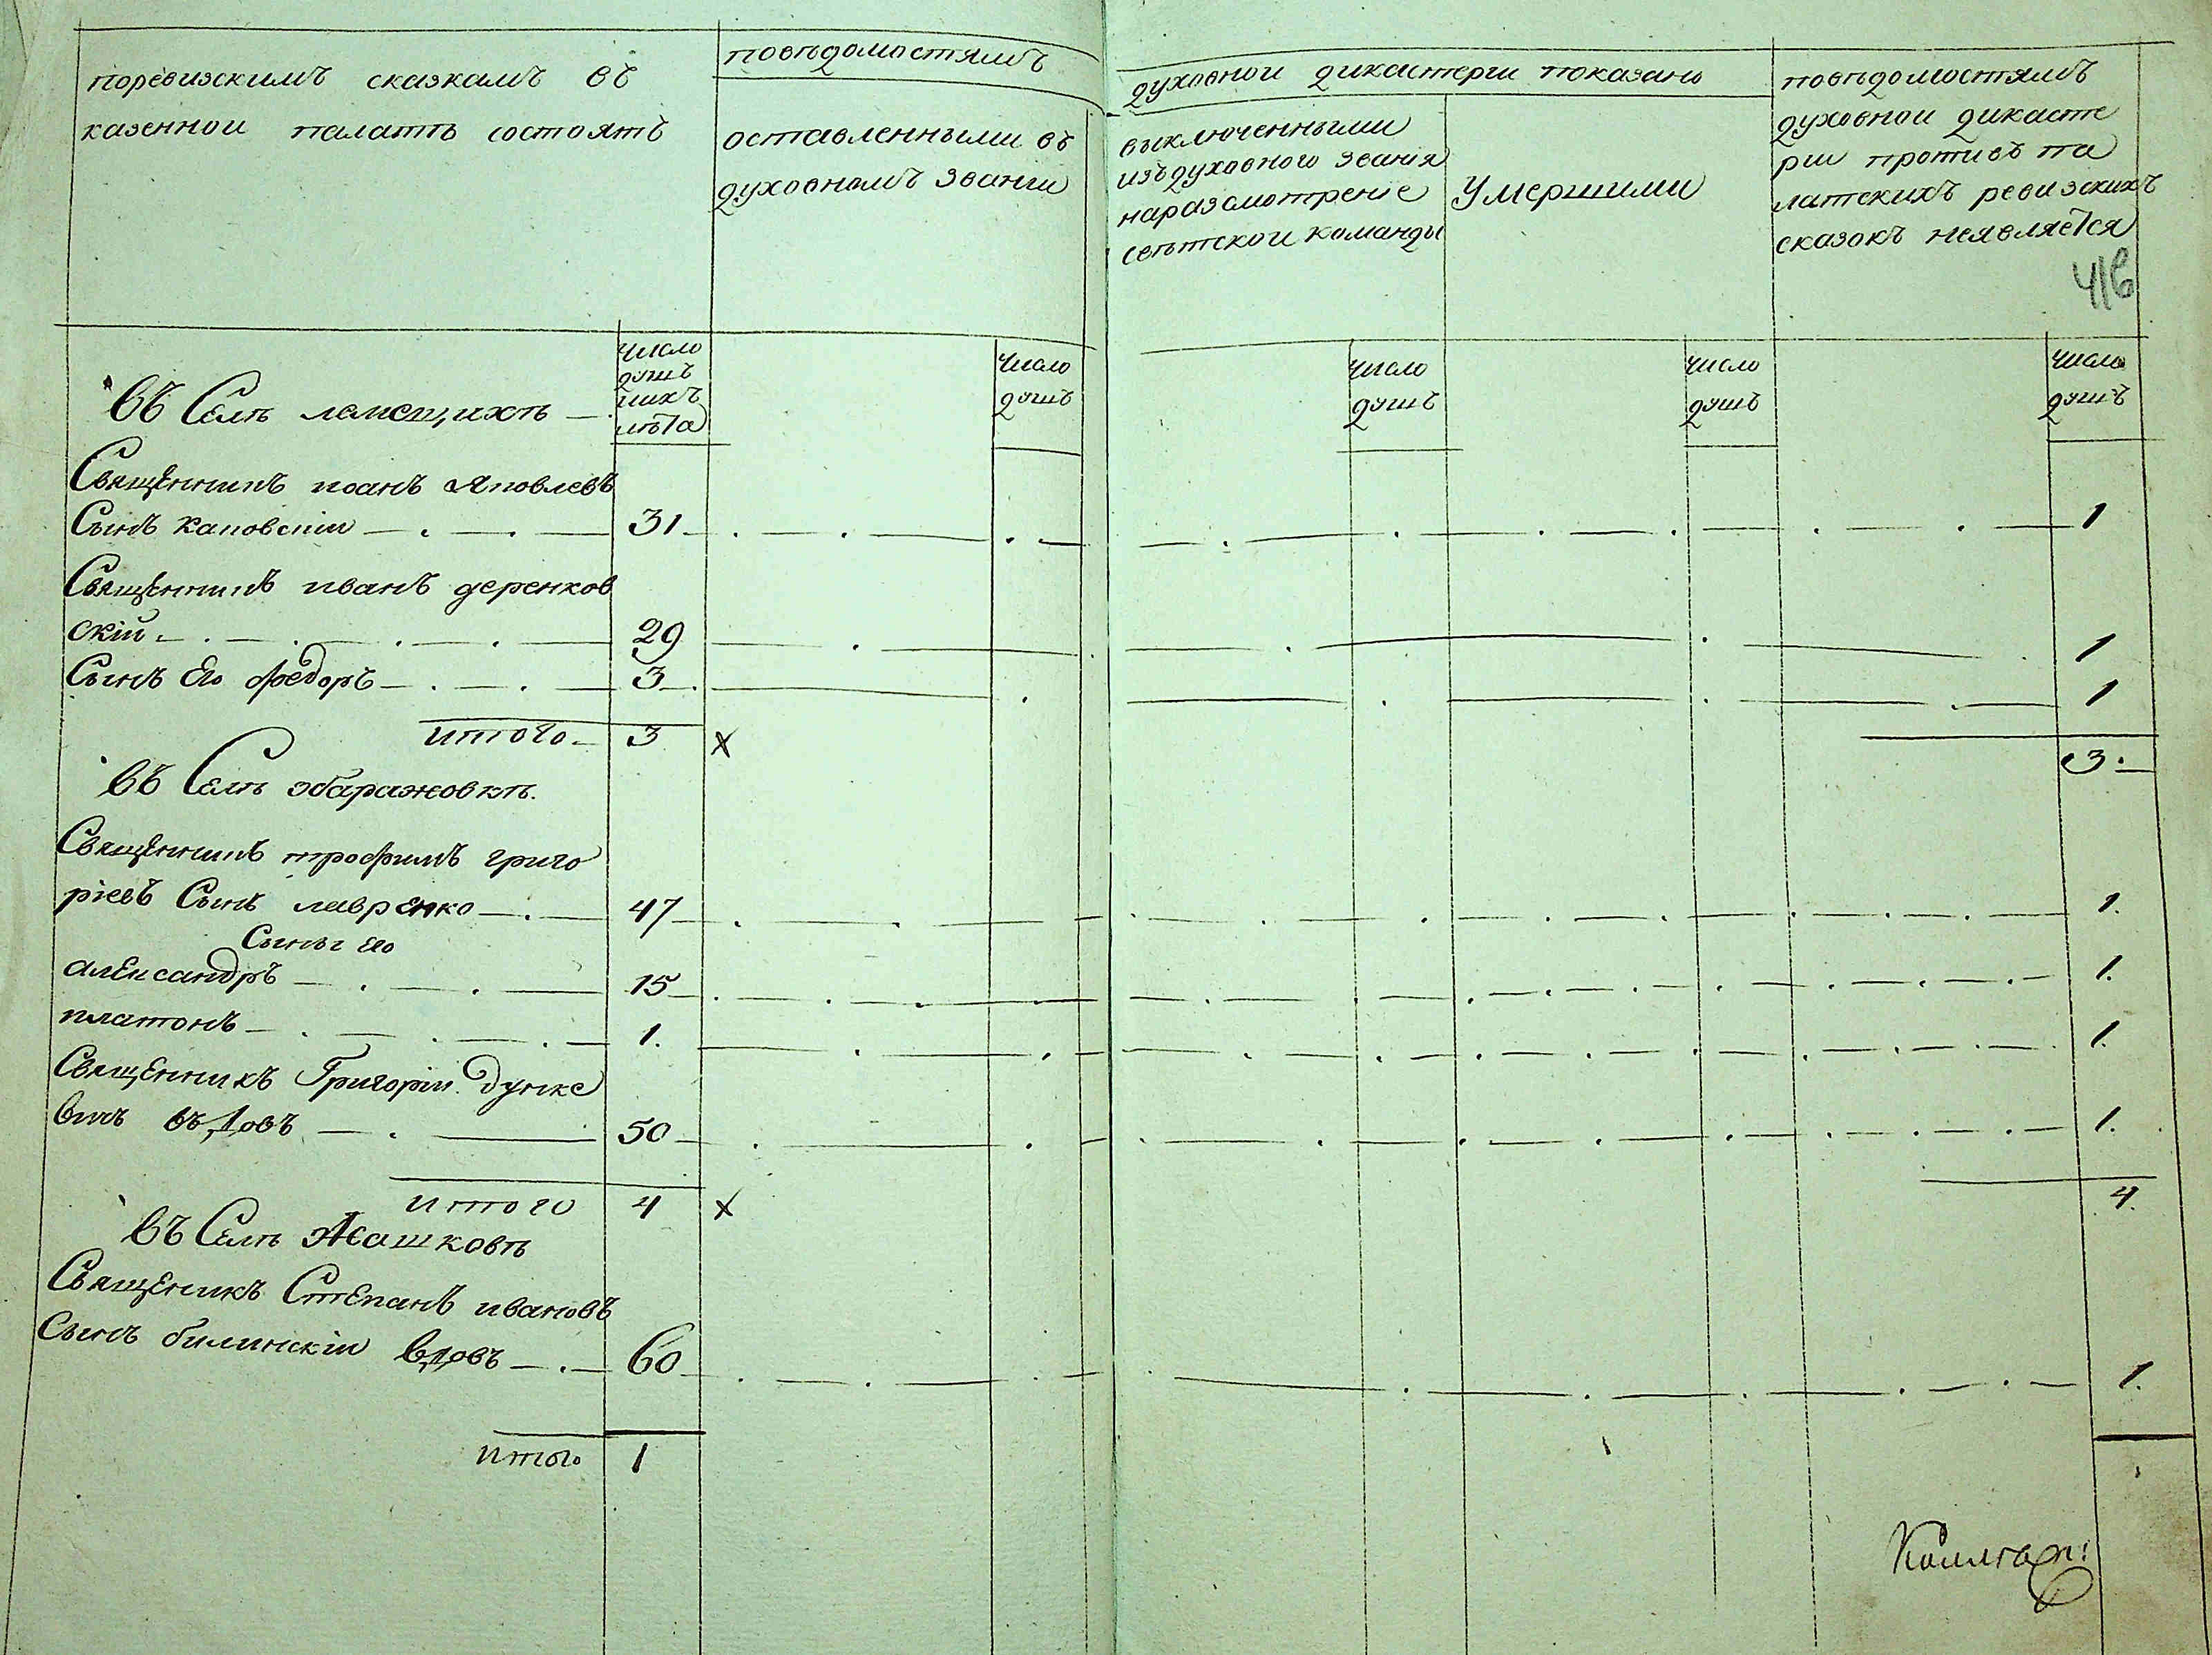 поревизскимъ сказкамъ въ
казенной палатѣ состоятъ
повѣдомостямъ
оставленными въ
духовномъ звании
духовной дикастерии показано
выключенными
изъ духовного звания
наразсмотрение
свѣтской команды
Умершими
повѣдомостямъ
духовной дикасте
рии противъ па
латскихъ ревизскихъ
сказокъ неявляется
416
число
душъ
ихъ
лѣта
число
душъ
число
душъ
число
душъ
число
душъ
Въ Селѣ лемещихѣ
Священникъ иоанъ Яковлевъ
Сынъ каковскій 31 1
Священникъ иванъ деренков
скій 29 1
Сынъ Его федоръ 3 1
итого 3 х 3
Въ Селѣ збаражовкѣ
Священникъ трофимъ григо
ріевъ Сынъ лавренко 47 1.
Сыны его
александръ 15 1.
платонъ 1. 1.
Священникъ Григорій дунке
вичъ въдовъ 50 1.
итого 4 х 4.
Въ Селѣ Жашковѣ
Священикъ Степанъ ивановъ
Сынъ билинскій вдовъ 60 1.
итого 1